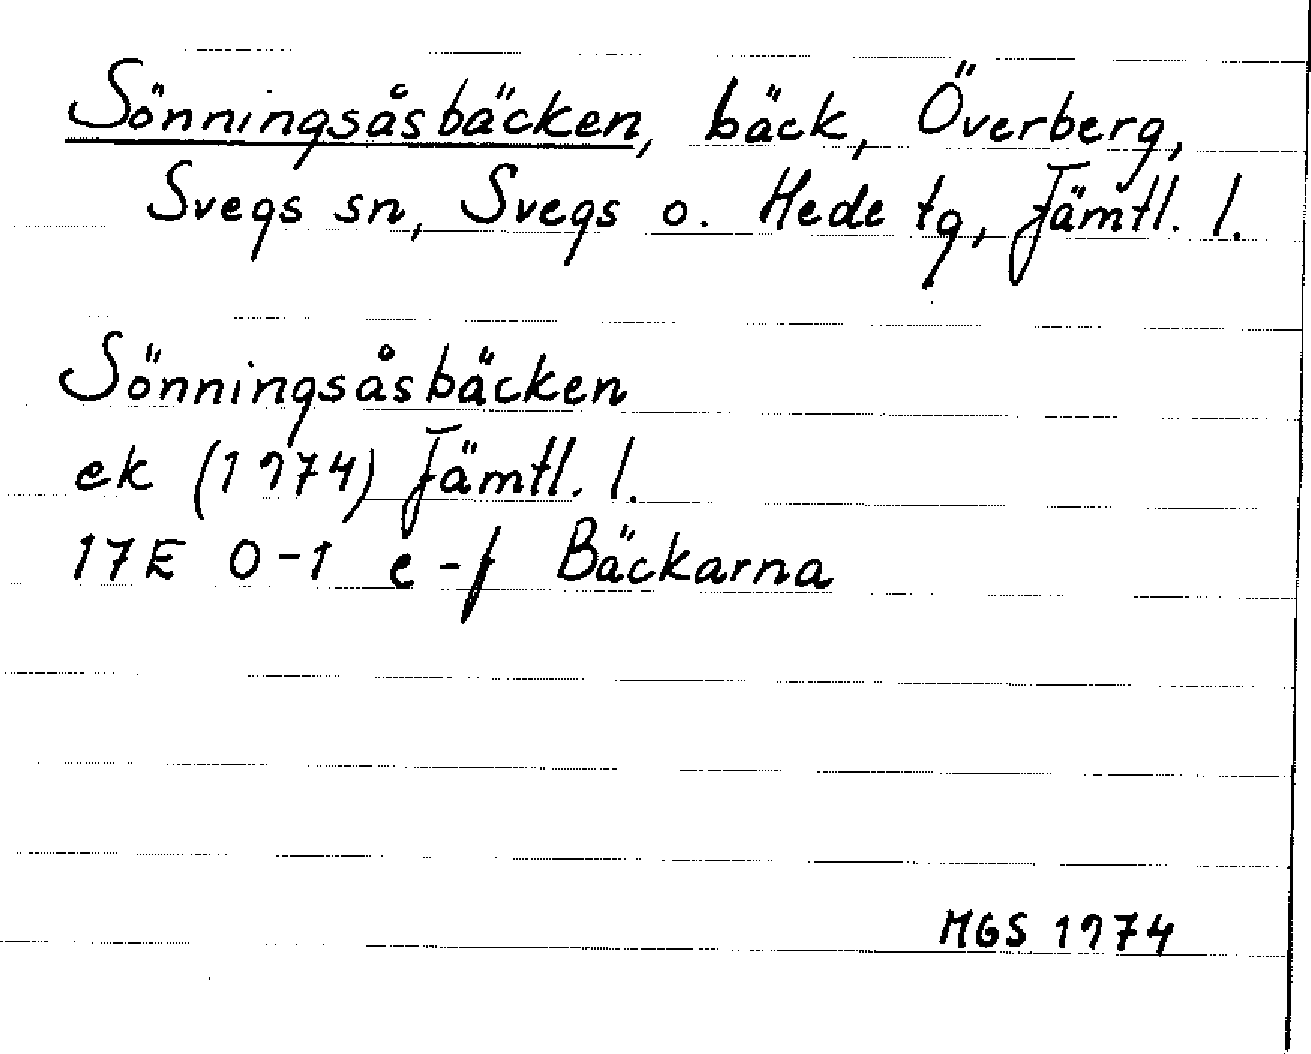 Sönningsåsbäcken, bäck, Överberg,
Svegs sn, Svegs o. Hede tg, Jämtl. l.
Sönningsåsbäcken
ek (1974) Jämtl. l.
17E 0-1 e-f Bäckarna
MGS 1974